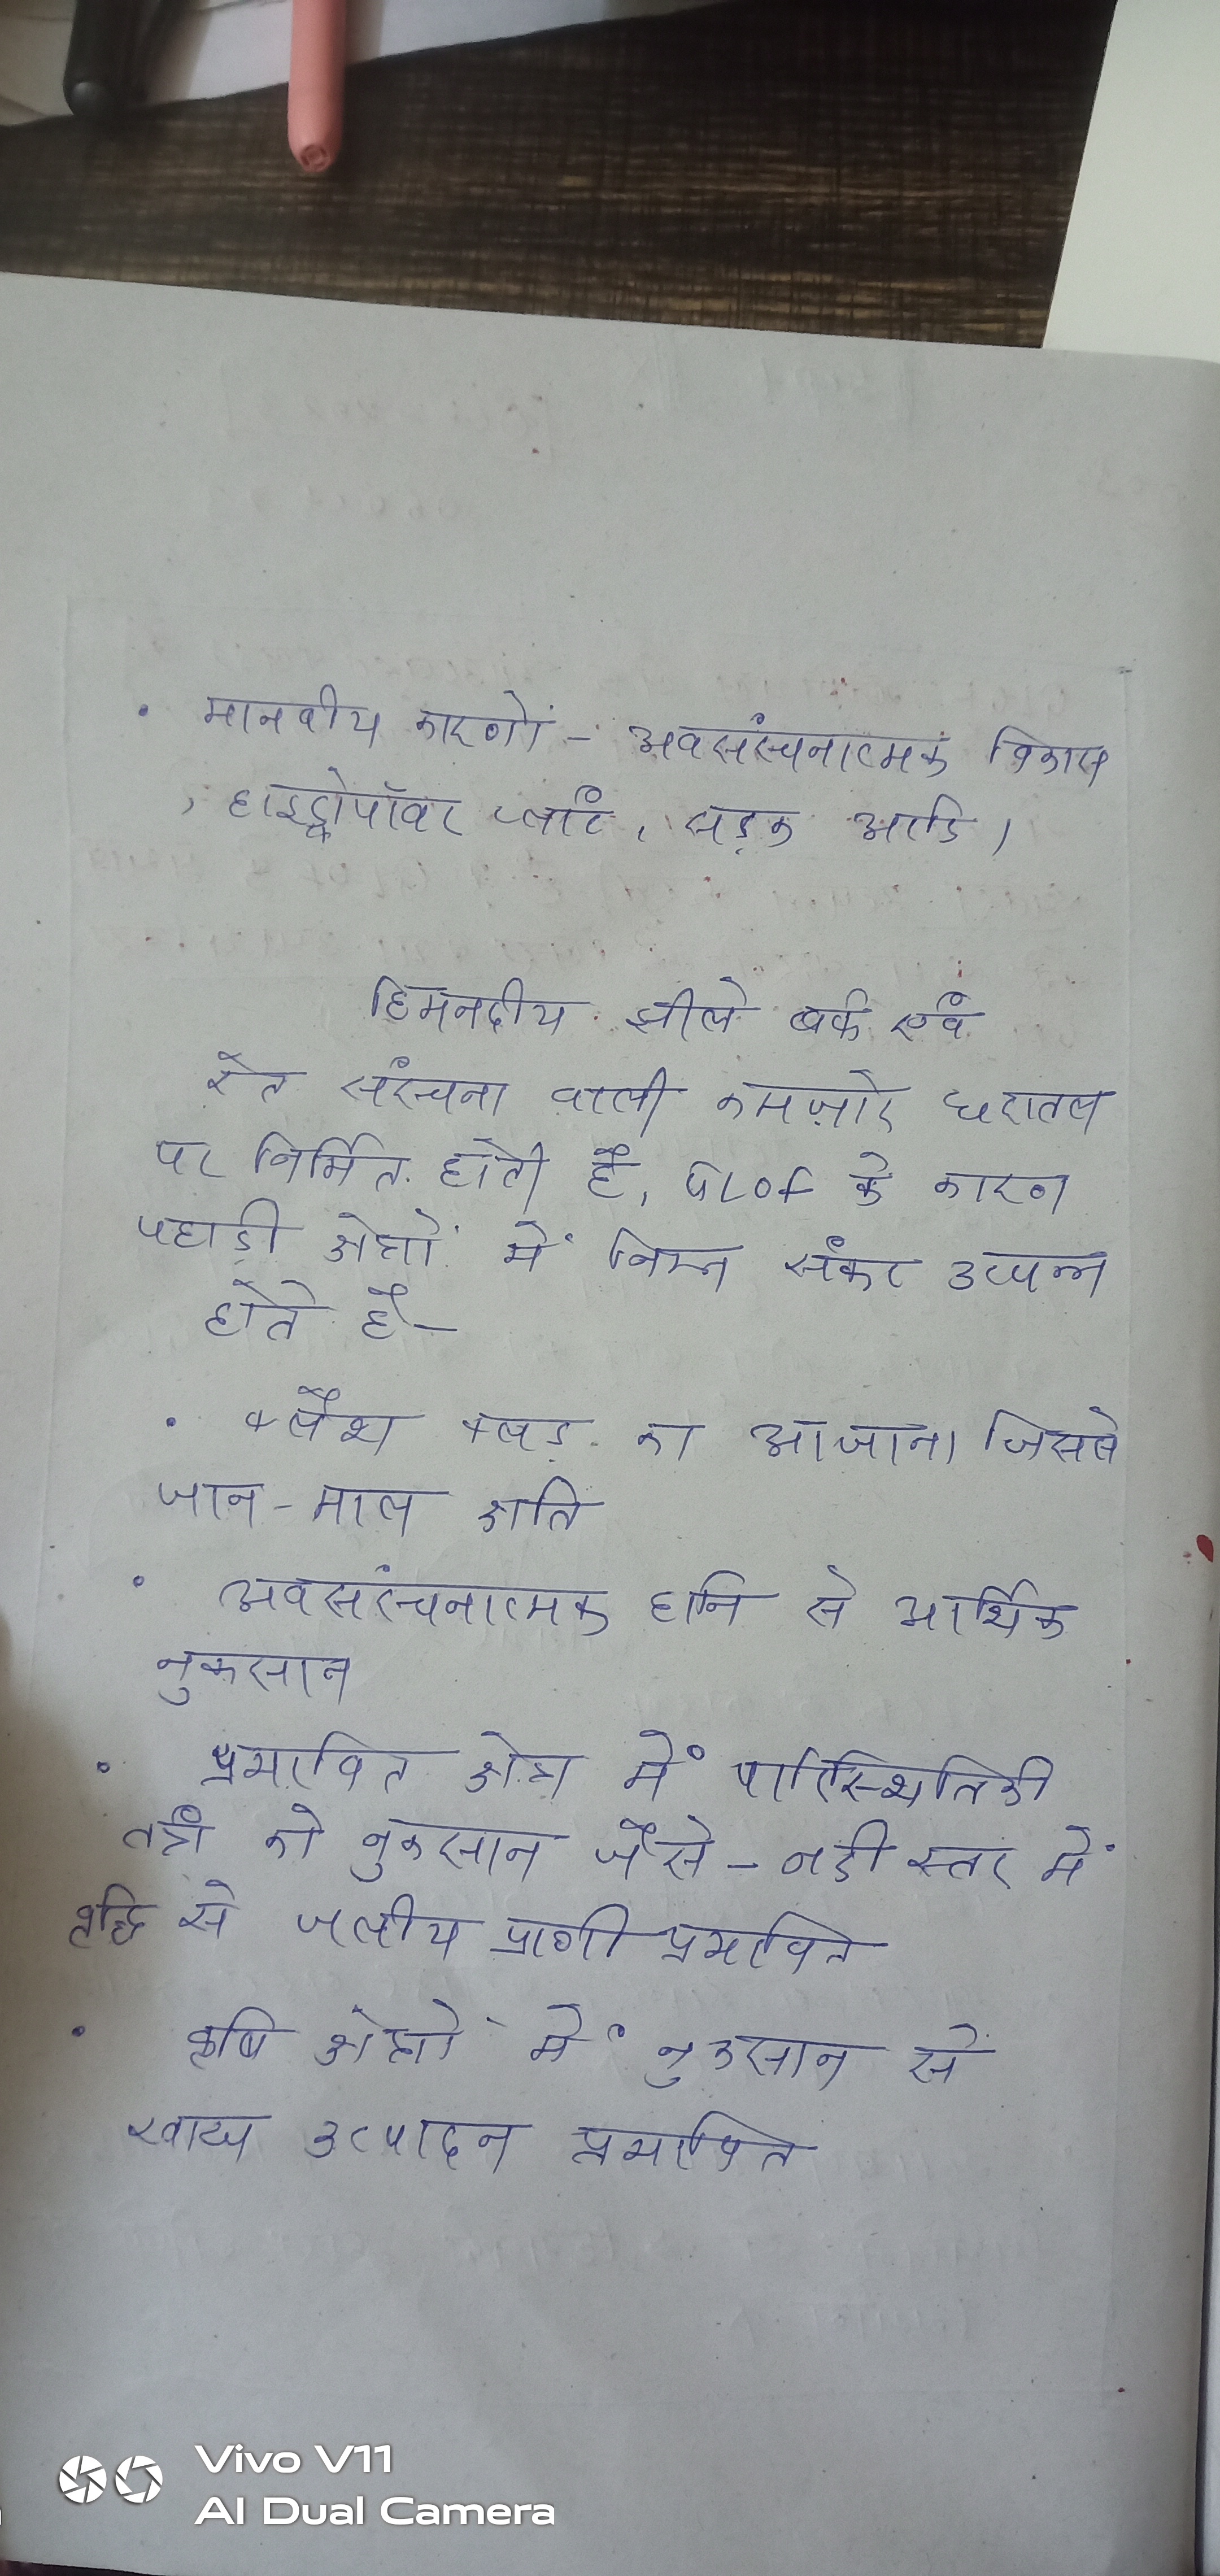 • मानवीय कारणों - अवसंरचनात्मक विकास
, हाइड्रोपॉवर प्लांट, सड़क आदि,
हिमनदीय झीले बर्फ एवं
रेत संरचना वाली कमज़ोर धरातल
पर निर्मित होती है, GLOF के कारण
पहाड़ी क्षेत्रों में निम्न संकट उत्पन्न
होते है -
• फ्लैश फ्लड का आजाना जिससे
जान - माल क्षति
• अवसंरचनात्मक हानि से आर्थिक
नुकसान
• प्रभावित क्षेत्र में पारिस्थितिकी
तंत्र को नुकसान जैसे - नदी स्तर में
वृद्धि से जलीय प्राणी प्रभावित
• कृषि क्षेत्रों में नुकसान से
खाद्य उत्पादन प्रभावित
Vivo V11
AI Dual Camera